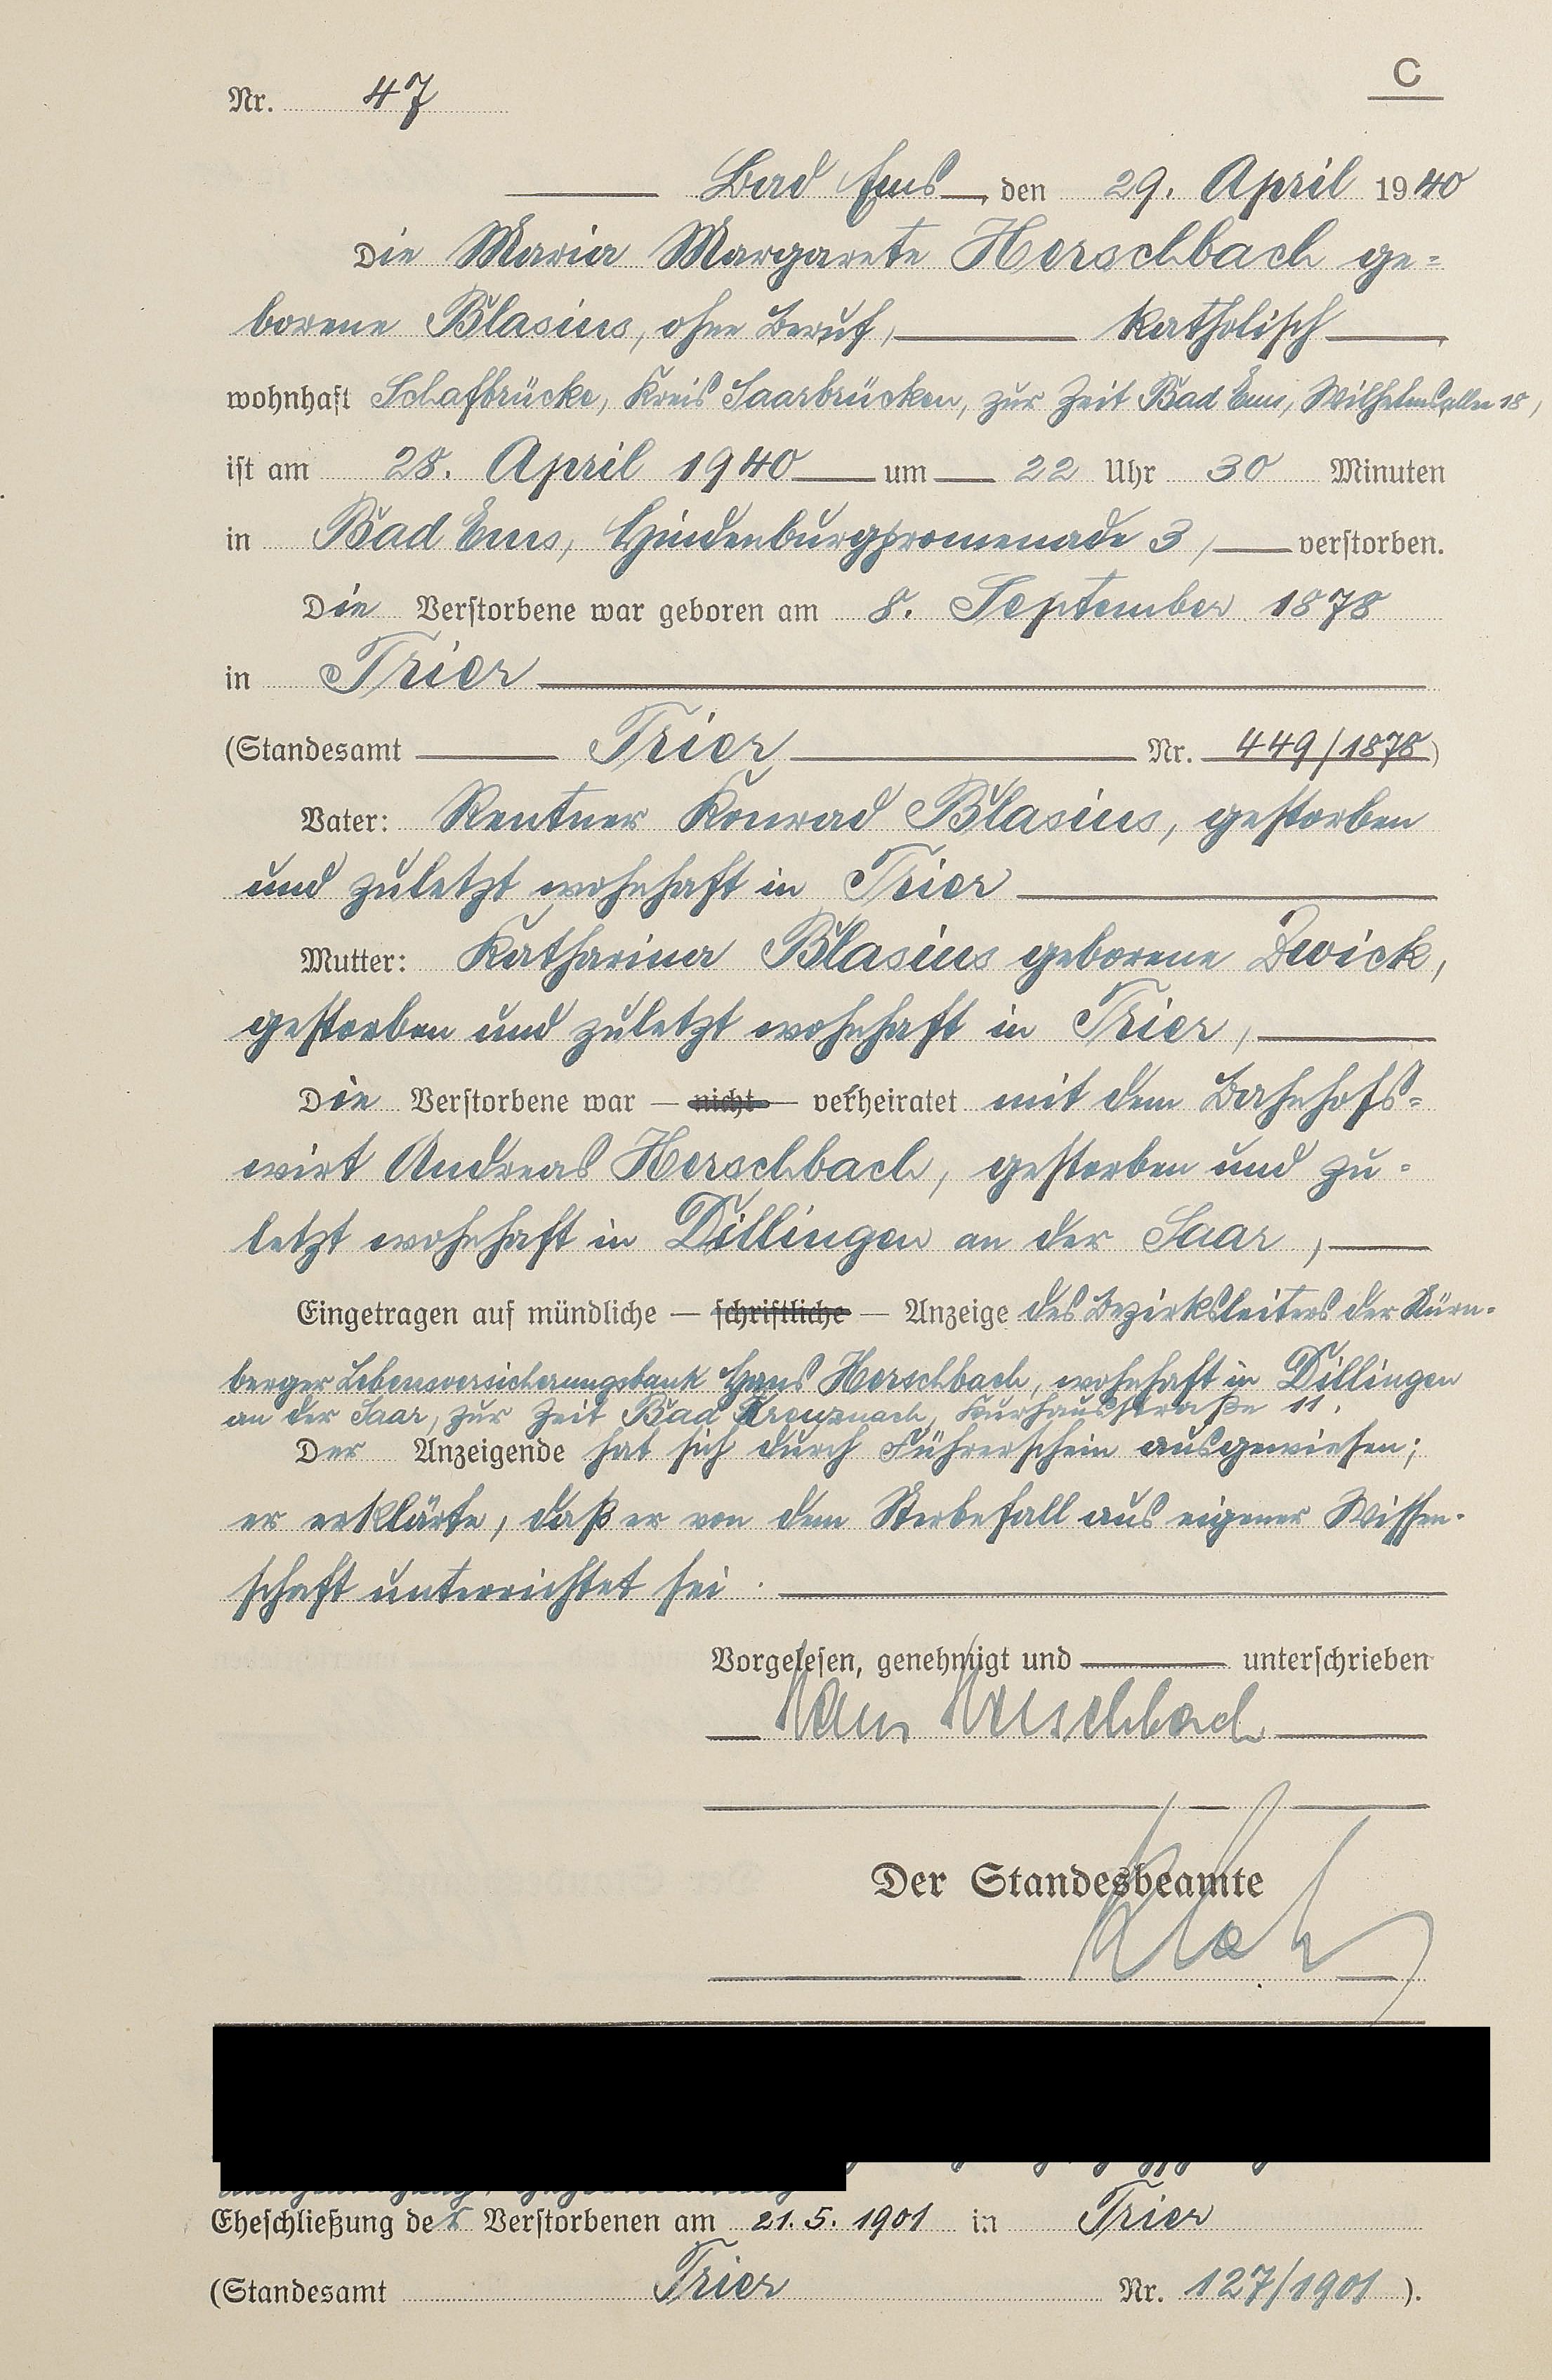 C
Nr. 47
Bad Ems, den 29. April 1940
Die Maria Margarete Herschbach ge=
borene Blasius, ohne Beruf, katholisch
wohnhaft Schafbrücke, Kreis Saarbrücken, zur Zeit Bad Ems, Wilhelmsallee 18,
ist am 28. April 1940 um 22 Uhr 30 Minuten
in Bad Ems, Hindenburgpromenade 3, verstorben.
Die Verstorbene war geboren am 8. September 1878
in Trier
(Standesamt Trier Nr. 449/1878)
Vater: Rentner Konrad Blasius, gestorben
und zuletzt wohnhaft in Trier
Mutter: Katharina Blasius geborene Zwick,
gestorben und zuletzt wohnhaft in Trier,
Die Verstorbene war — nicht — verheiratet mit dem Bahnhofs=
wirt Andreas Herschbach, gestorben und zu=
letzt wohnhaft in Dillingen an der Saar,
Eingetragen auf mündliche — schriftliche — Anzeige des Bezirksleiters der Nürn-
berger Lebensversicherungsbank Hans Herschbach, wohnhaft in Dillingen
an der Saar, zur Zeit Bad Kreuznach, Kurhausstraße 11.
Der Anzeigende hat sich durch Führerschein ausgewiesen;
er erklärte, daß er von dem Sterbefall aus eigener Wissen-
schaft unterrichtet sei.
Vorgelesen, genehmigt und unterschrieben
Hans Herschbach
Der Standesbeamte
Eheschließung der Verstorbenen am 21. 5. 1901 in Trier
(Standesamt Trier Nr. 127/1901).